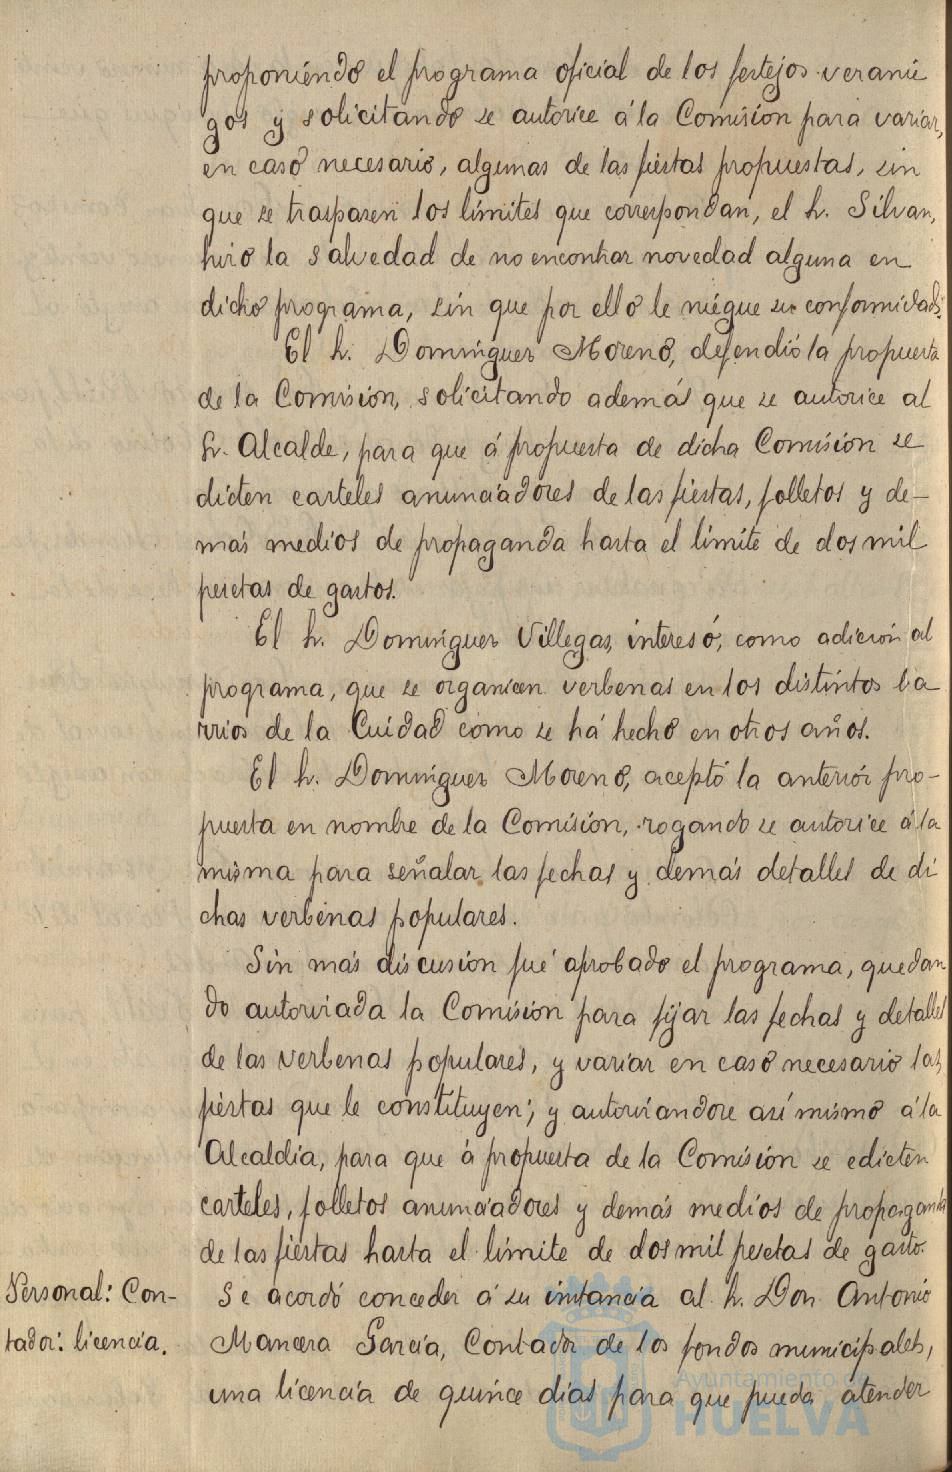 proponiéndo el programa oficial de los festejos veranie
gos y solicitando se autorice á la Comisión para variar,
en caso necesario, algunas de las fiestas propuestas, sin
que se traspasen los límites que correspondan, el Sr. Silvan,
hizo la salvedad de no encontrar novedad alguna en
dicho programa, sin que por ello le niegue su conformidad.
El Sr. Domínguez Moreno, defendió la propuesta
de la Comisión, solicitando además que se autorice al
Sr. Alcalde, para que á propuesta de dicha Comisión se
dicten carteles anunciadores de las fiestas, folletos y de-
más medios de propaganda hasta el límite de dos mil
pesetas de gastos.
El Sr. Domínguez Villegas, interesó, como adición al
programa, que se organicen verbenas en los distintos ba
rrios de la Cuidad como se há hecho en otros años.
El Sr. Domínguez Moreno, aceptó la anterior pro-
puesta en nombre de la Comisión, rogando se autorice á la
misma para señalar las fechas y demás detalles de di
chas verbenas populares.
Sin más discusión fué aprobado el programa, quedan
do autorizada la Comisión para fijar las fechas y detalles
de las verbenas populares, y variar en caso necesario las
fiestas que le constituyen; y autorizandose así mismo á la
Alcaldía, para que á propuesta de la Comisión se edicten
carteles, folletos anunciadores y demás medios de propaganda
de las fiestas hasta el límite de dos mil pesetas de gasto.
Personal: Con-
tador: licencia.
Se acordó conceder á su instancia al Sr. Don Antonio
Mancera García, Contador de los fondos municipales,
una licencia de quince días para que pueda atender
Ayuntamiento de
HUELVA